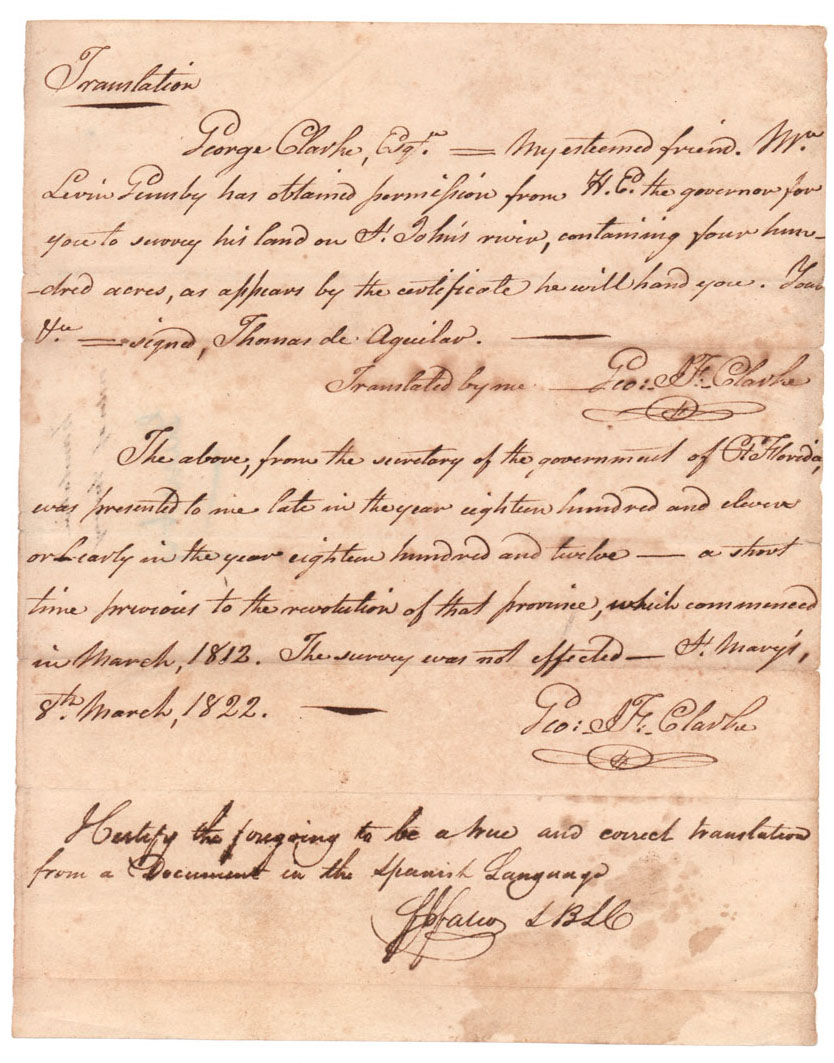 Translation
George Clarke, Esqre. = My esteemed friend. Mr.
Levin Gunby has obtained permission from H.E. the governor for
you to survey his land on St. John's river, containing four hun-
-dred acres, as appears by the certificate he will hand you. Your
&c. = signed, Thomas de Aguilar. —
Translated by me — Geo: J. F. Clarke
The above, from the secretary of the government of Et. Florida,
was presented to me late in the year eighteen hundred and eleven
or early in the year eighteen hundred and twelve — a short
time previous to the revolution of that province, which commenced
in March, 1812. The survey was not effected — St. Mary's,
8th. March, 1822. —
Geo: J. F. Clarke
I Certify the foregoing to be a true and correct translation
from a Document in the Spanish Language
Fatio S B L C